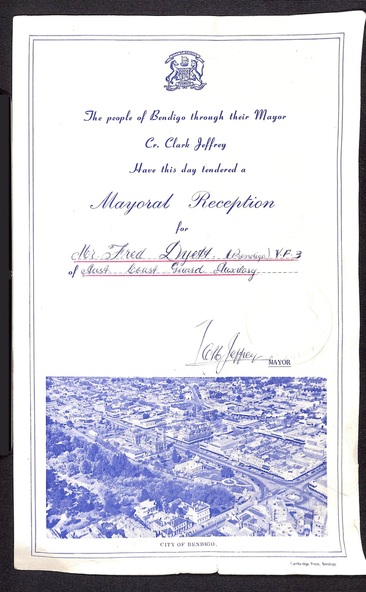 The people of Bendigo through their Mayor
Cr. Clark Jeffrey
Have this day tendered a
Mayoral Reception
for
Mr. Fred Lyett. (Bendigo) V.F.3
of Aust Coast Guard Auxilary
Jeffrey
MAYOR
CITY OF BENDIGO.
Cambridge Press, Bendigo